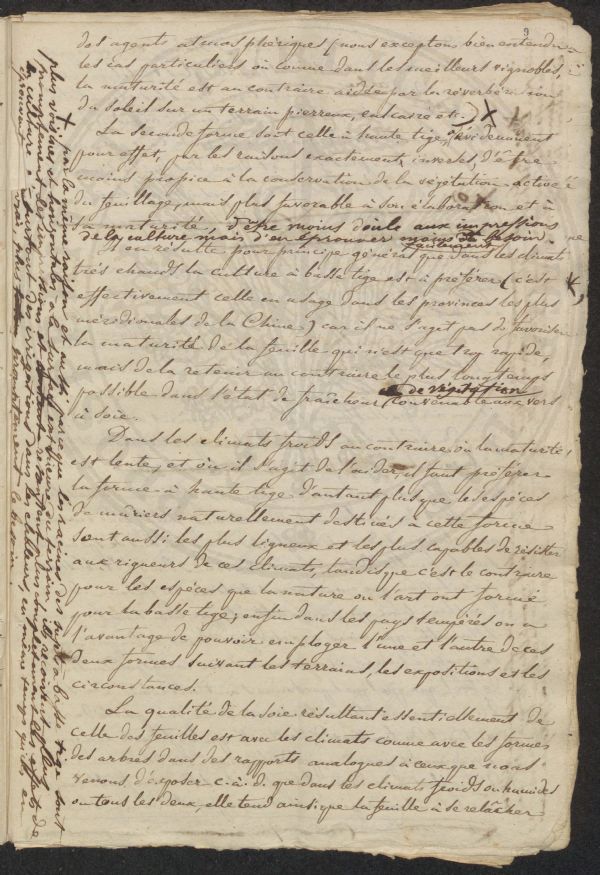 9
des agents atmosphériques (nous exceptons bien entendu
les cas particuliers où comme dans les meilleurs vignobles,
la maturité est au contraire aidée par la réverbération
du soleil sur un terrain pierreux, encaissé etc.) X X
La seconde forme soit celle à haute tige, évidemment
pour effet, par les raisons exactement inverses, d'être
moins propice à la conservation de la végétation active
du feuillage, mais plus favorable à son élaboration et à
sa maturité, d'être moins docile aux impressions
de la culture mais d'en éprouver moins le besoin.
Il en résulte pour principe général que dans les climats
très chauds la culture à basse tige est à préférer (c'est
effectivement celle en usage dans les provinces les plus
méridionales de la Chine) car il ne s'agit pas de favoriser
la maturité de la feuille qui n'est que trop rapide,
mais de la retenir au contraire le plus longtemps
possible dans l'état de fraîcheur de végétation convenable aux vers
à soie.
Dans les climats froids au contraire où la maturité
est lente, et où il s'agit de l'aider, il faut préférer
la forme à haute tige d'autant plus que les espèces
de mûriers naturellement destinés à cette forme
sont aussi les plus ligneux et les plus capables de résister
aux rigueurs de ces climats, tandis que c'est le contraire
pour les espèces que la nature ou l'art ont formé
pour la basse tige; enfin dans les pays tempérés on a
l'avantage de pouvoir employer l'une et l'autre de ces
deux formes suivant les terrains, les expositions et les
circonstances.
La qualité de la soie résultant essentiellement de
celle des feuilles est avec les climats comme avec les formes
des arbres dans des rapports analogues à ceux que nous
venons d'éxposer c. à. d. que dans les climats froids ou humides
ou tous les deux, elle tend ainsi que la feuille à se relâcher
X par la même raison et aussi parce que les racines du mûrier à basse tige sont
plus voisines et horizontales à la surface du terrain, il reçoit plus
la culture et surtout des irrigations dans les chaleurs, en même temps qu'il en
éprouve le besoin.